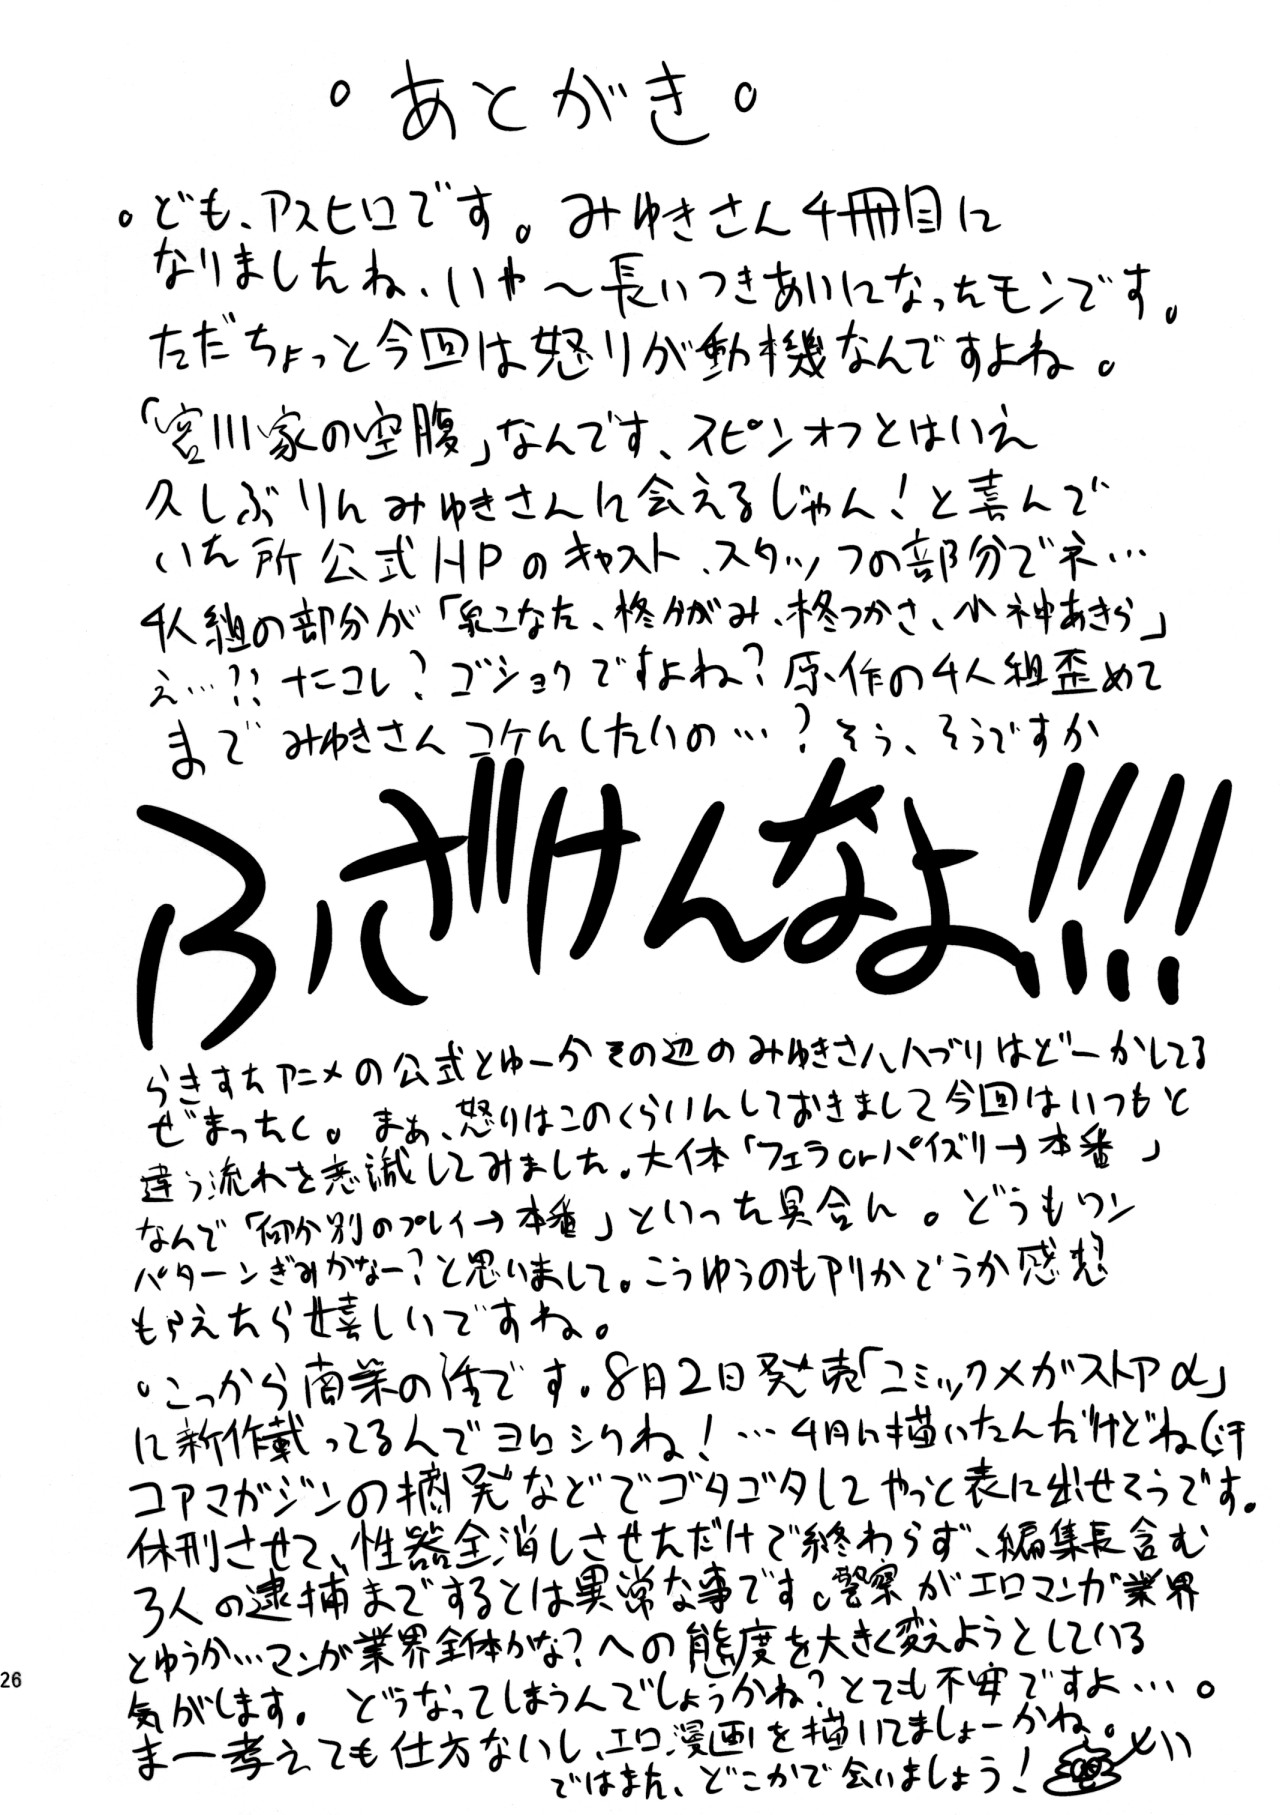 。あとがき。
。ども、アスヒロです。みゆきさん4冊目に
なりましたね、いや〜長いつきあいになったモンです。
ただちょっと今回は怒りが動機なんですよね。
「宮川家の空腹」なんです、スピンオフとはいえ
久しぶりんみゆきさんに会えるじゃん!と喜んで
いた所公式HPのキャスト、スタッフの部分でネ…
4人組の部分が「泉こなた、柊かがみ、柊つかさ、小神あきら」
え…?? ナニコレ?ゴショクですよね?原作の4人組歪めて
までみゆきさんコケんしたいの…?そう、そうですか
ふざけんなよ!!!!
らきすたアニメの公式とゆーかその辺のみゆきさんハブリはどーかしてる
ぜまったく。まぁ、怒りはこのくらいんしておきまして今回はいつもと
違う流れを意識してみました。大体「フェラorパイズリ→本番」
なんで「何か別のプレイ→本番」といった具合ん。どうもワン
パターンぎみかなー?と思いまして。こうゆうのもアリかどうか感想
もらえたら嬉しいですね。
。こっから商業の話です。8月2日発売「コミックメガストアα」
に新作載ってるんでヨロシクね!…4月に描いたんだけどね(汗
コアマガジンの摘発などでゴタゴタしてやっと表に出せそうです。
休刊させて、性器全消しさせただけで終わらず、編集長含む
3人の逮捕まですることは異常な事です。警察がエロマンガ業界
とゆうか…マンガ業界全体かな?への態度を大きく変えようとしている
気がします。どうなってしまうんでしょうかね?とても不安ですよ…。
まー考えても仕方ないし、エロ漫画を描いてましょーかね。
ではまた、どこかで会いましょう!
26